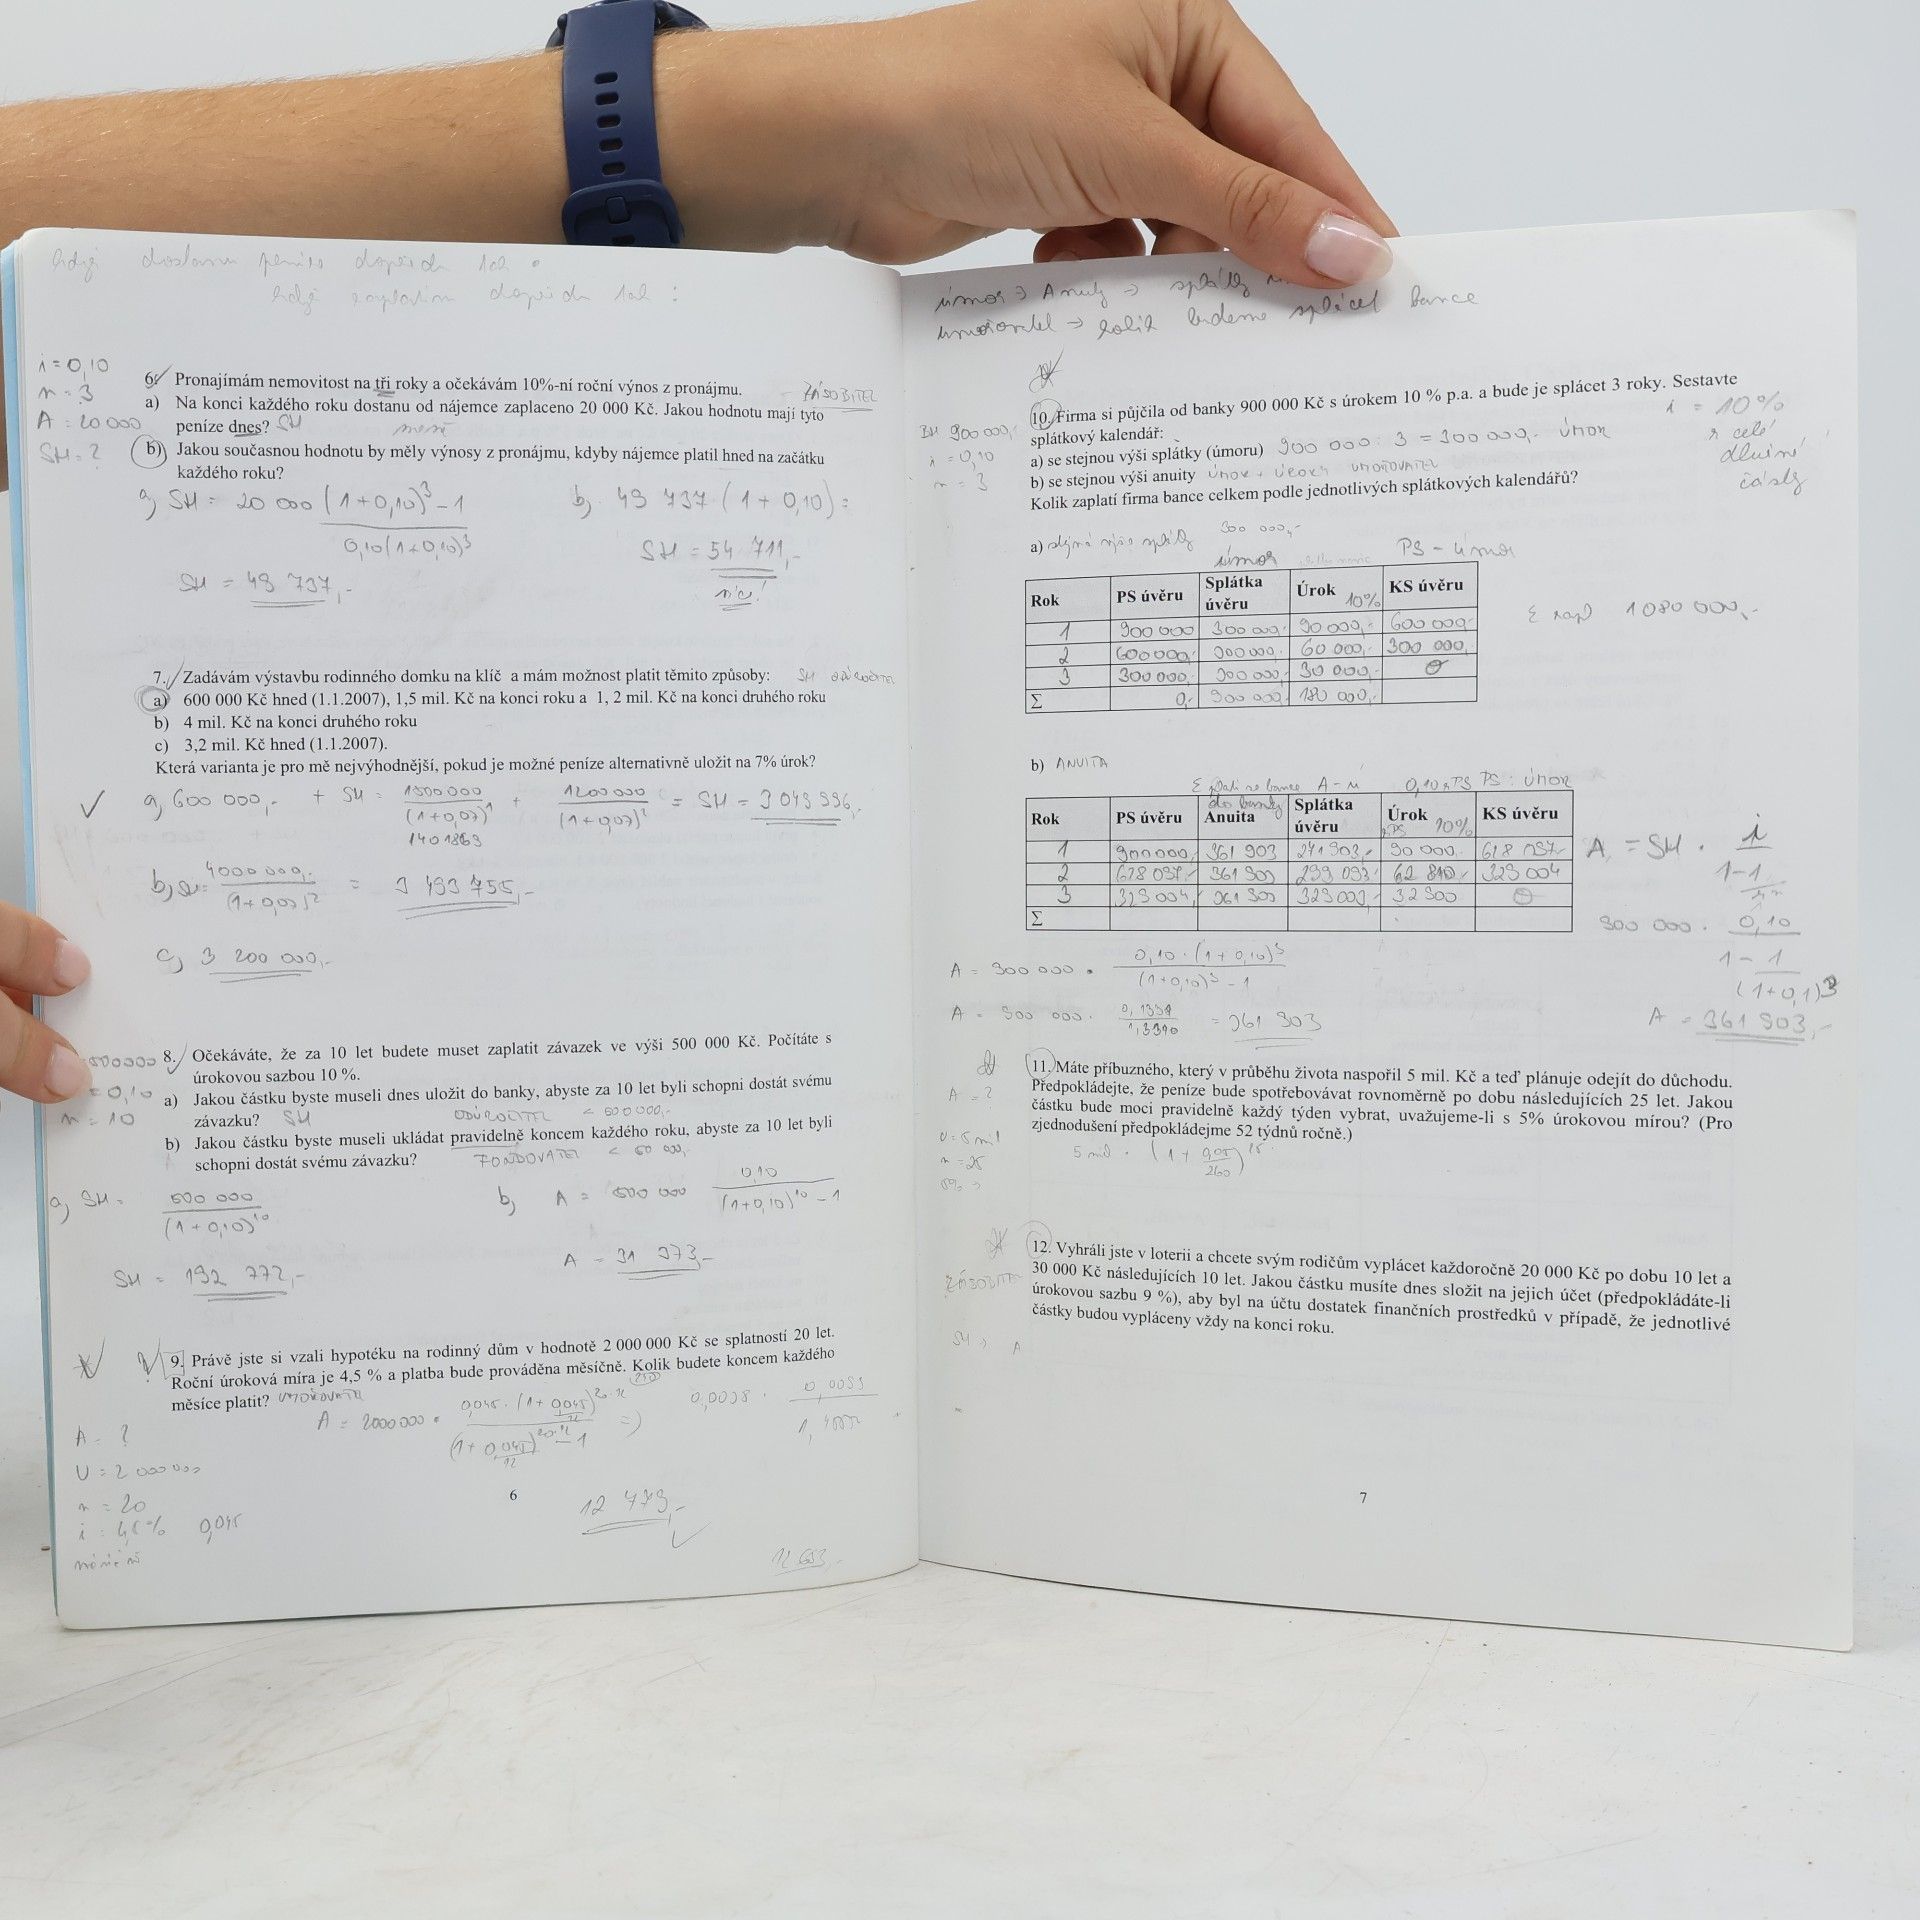 když dostanu peníze dopředu tak
když zaplatím dopředu tak :
i = 0,10
n = 3
A = 20 000
SH = ?
6. Pronajímám nemovitost na tři roky a očekávám 10%-ní roční výnos z pronájmu.
- ZÁSOBITEL
a) Na konci každého roku dostanu od nájemce zaplaceno 20 000 Kč. Jakou hodnotu mají tyto
peníze dnes? SH
b) Jakou současnou hodnotu by měly výnosy z pronájmu, kdyby nájemce platil hned na začátku
každého roku?
a) SH = 20 000 (1+0,10)³ - 1
0,10(1+0,10)³
SH = 49 737,-
b) 49 737 (1 + 0,10) =
SH = 54 711,-
více!
7. Zadávám výstavbu rodinného domku na klíč a mám možnost platit těmito způsoby: SH ODÚROČITEL
a) 600 000 Kč hned (1.1.2007), 1,5 mil. Kč na konci roku a 1, 2 mil. Kč na konci druhého roku
b) 4 mil. Kč na konci druhého roku
c) 3,2 mil. Kč hned (1.1.2007).
Která varianta je pro mě nejvýhodnější, pokud je možné peníze alternativně uložit na 7% úrok?
a) 600 000,- + SH = 1500000 + 1200000 = SH = 3 049 996,-
(1+0,07)¹ (1+0,07)²
1401869
b) 4000 000,- = 3 493 755,-
(1+0,07)²
c) 3 200 000,-
500000
= 0,10
n = 10
8. Očekáváte, že za 10 let budete muset zaplatit závazek ve výši 500 000 Kč. Počítáte s
úrokovou sazbou 10 %.
a) Jakou částku byste museli dnes uložit do banky, abyste za 10 let byli schopni dostát svému
závazku? SH ODÚROČITEL < 500000,-
b) Jakou částku byste museli ukládat pravidelně koncem každého roku, abyste za 10 let byli
schopni dostát svému závazku? FONDOVATEL < 50 000,-
a) SH = 500 000
(1+0,10)¹⁰
SH = 192 772,-
b) A = 500 000 0,10
(1+0,10)¹⁰ - 1
A = 31 373,-
9. Právě jste si vzali hypotéku na rodinný dům v hodnotě 2 000 000 Kč se splatností 20 let.
Roční úroková míra je 4,5 % a platba bude prováděna měsíčně. Kolik budete koncem každého
měsíce platit? UMOŘOVATEL
A = ?
U = 2 000 000
n = 20
i = 4,5% 0,045
měsíčně
A = 2000 000 · 0,045 · (1 + 0,045/12)²⁰·¹²
(1 + 0,045/12)²⁰·¹² - 1
12 473,-
12 653,-
6
úmor → Anuity → splátky
umořovatel → kolik budeme splácet bance
900 000,-
i = 0,10
n = 3
10. Firma si půjčila od banky 900 000 Kč s úrokem 10 % p.a. a bude je splácet 3 roky. Sestavte
splátkový kalendář:
i = 10%
z celé
dlužné
částky
a) se stejnou výši splátky (úmoru) 900 000 : 3 = 300 000,- ÚMOR
b) se stejnou výši anuity ÚMOR + ÚROKY UMOŘOVATEL
Kolik zaplatí firma bance celkem podle jednotlivých splátkových kalendářů?
300 000,-
a) stejná výše splátky
úmor PS - úmor
Rok PS úvěru Splátka úvěru Úrok 10% KS úvěru
1 900 000 300 000,- 90 000,- 600 000,-
2 600 000,- 300 000,- 60 000,- 300 000,-
3 300 000,- 300 000,- 30 000,- 0
Σ 0,- 900 000,- 180 000,-
Σ 1 080 000,-
b) ANUITA
0,10 · PS PS : ÚMOR
do banky
Rok PS úvěru Anuita Splátka úvěru Úrok 10% KS úvěru
1 900000,- 361 903 271 903,- 90 000,- 628 097,-
2 628 097,- 361 903 299 093,- 62 810,- 329 004
3 329 004,- 361 903 329 003,- 32 900 0
Σ
A = SH · i
1-1
900 000 · 0,10
1 - 1
(1+0,1)³
A = 361 903,-
A = 900 000 · 0,10 · (1 + 0,10)³
(1+0,10)³ - 1
A = 900 000 · = 361 903
11. Máte příbuzného, který v průběhu života naspořil 5 mil. Kč a teď plánuje odejít do důchodu.
Předpokládejte, že peníze bude spotřebovávat rovnoměrně po dobu následujících 25 let. Jakou
částku bude moci pravidelně každý týden vybrat, uvažujeme-li s 5% úrokovou mírou? (Pro
zjednodušení předpokládejme 52 týdnů ročně.)
A = ?
U = 5 mil
n = 25
5 mil · (1 + 0,05/260)²⁵
12. Vyhráli jste v loterii a chcete svým rodičům vyplácet každoročně 20 000 Kč po dobu 10 let a
30 000 Kč následujících 10 let. Jakou částku musíte dnes složit na jejich účet (předpokládáte-li
úrokovou sazbu 9 %), aby byl na účtu dostatek finančních prostředků v případě, že jednotlivé
částky budou vypláceny vždy na konci roku.
ZÁSOBITEL
7